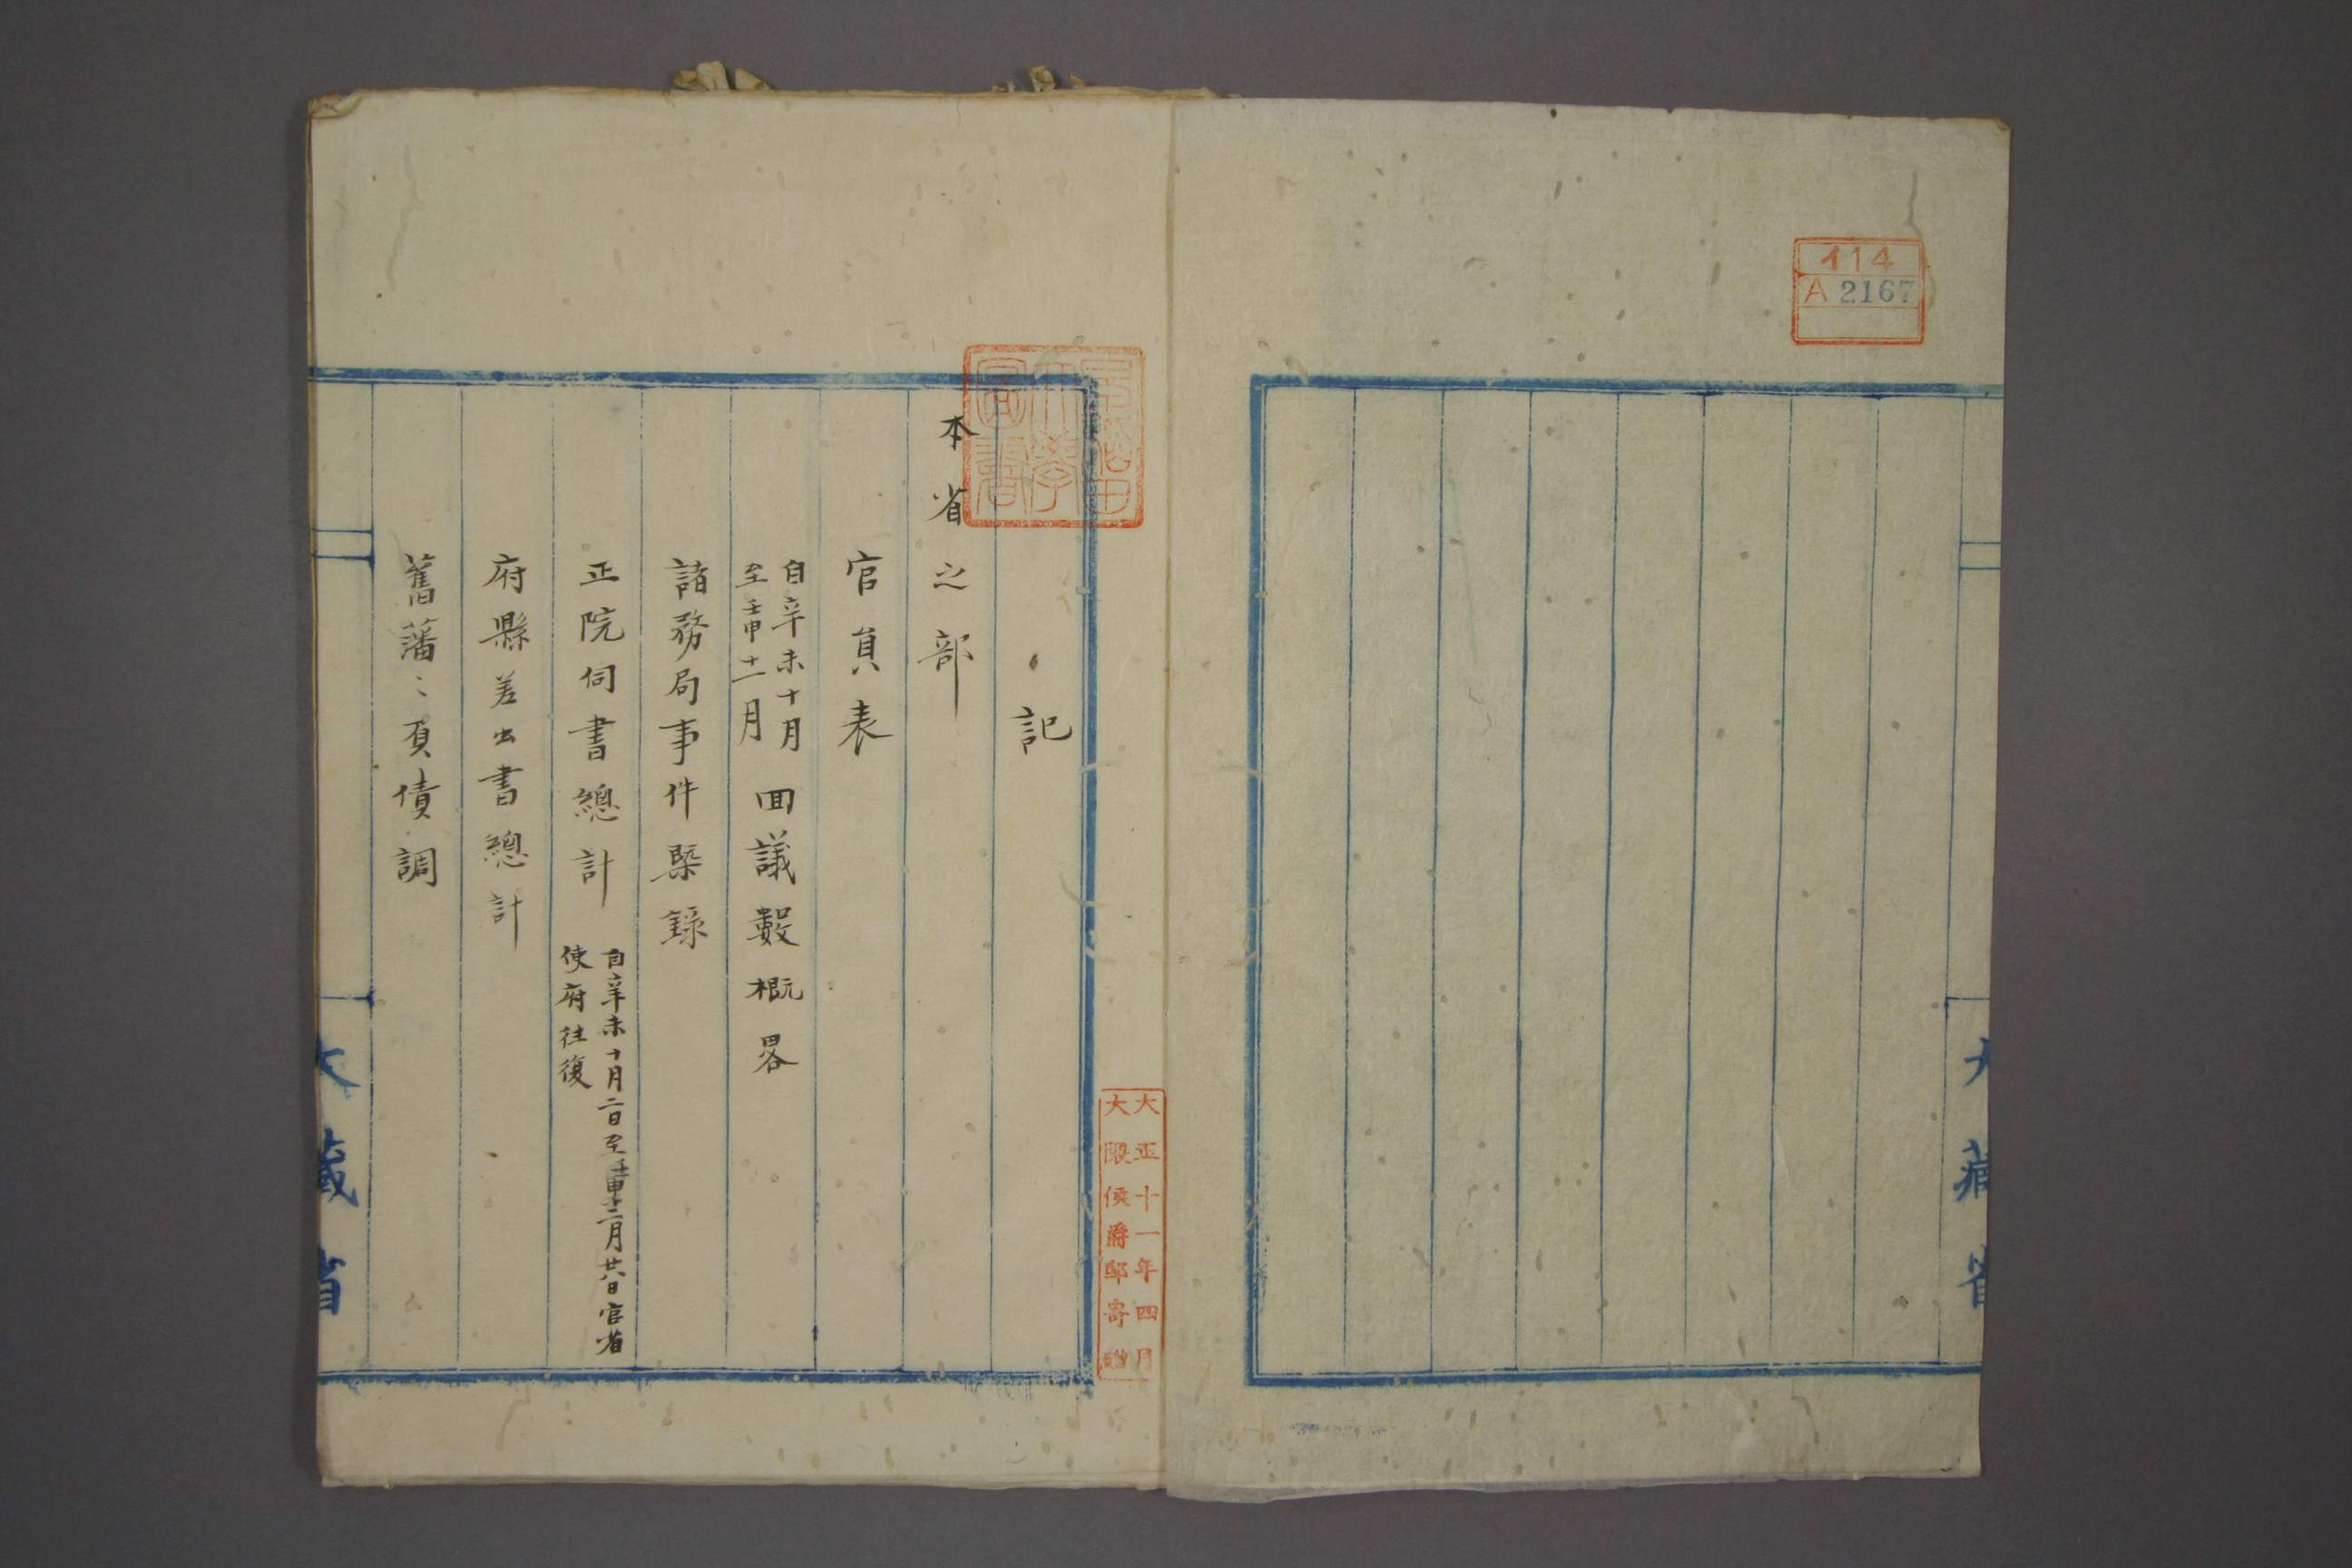 イ14
A 2167
大藏省
早稲田大學圖書
大正十一年四月
大隈侯爵邸寄贈
記
本省之部
官員表
自辛未十月
至壬申十一月
回議數概畧
諸務局事件槩録
正院伺書總計
自辛未十月二日至壬申十二月廿八日官省
使府往復
府縣差出書總計
舊藩〻負債調
大藏省